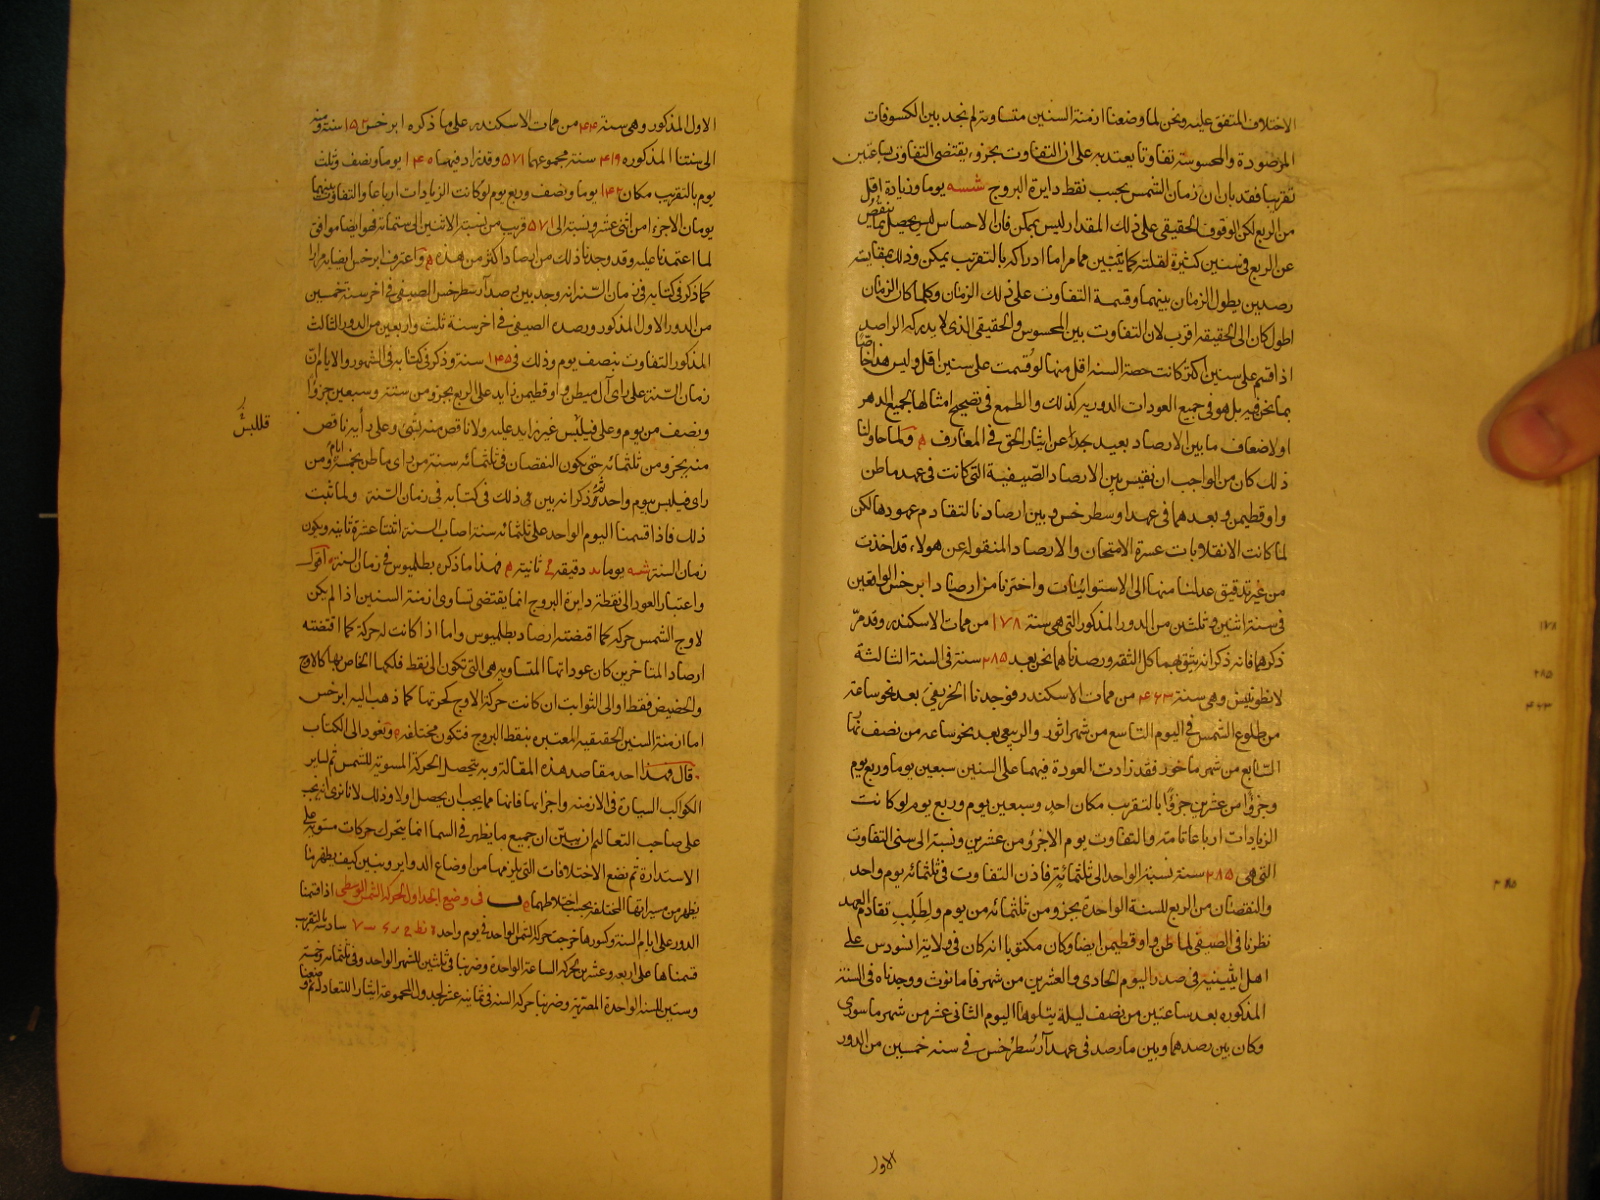 الاختلاف المتفق عليه ونحن لما وضعنا ازمنة السنين متساوية لم نجد بين الكسوفات
المرصودة والمحسوبة تفاوتا يعتد به على ان التفاوت بجزوء يقتضى التفاوت بساعتين
تقريبا فقد بان ان زمان الشمس بحسب نقط دايرة البروج شسه يوما وزيادة اقل
من الربع لكن الوقوف الحقيقى على ذلك المقدار ليس بممكن فان الاحساس ليس يحصل بما ينقص
عن الربع فى سنين كثيرة لقلته كما تبين مما مر اما ادراكه بالتقريب يمكن وذلك بمقايسة
رصدين يطول الزمان بينهما وقسمة التفاوت على ذلك الزمان وكلما كان الزمان
اطول كان الى الحقيقة اقرب لان التفاوت بين المحسوس والحقيقى الذى لا يدركه الراصد
اذا قسم على سنين اكثر كانت حصة السنة اقل منها لو قسمت على سنين اقل وليس هذا خاصا
بما نحن فيه بل هو فى جميع العودات الدورية كذلك والطمع فى تصحيح امثالها لجميع الدهر
او لاضعاف ما بين الارصاد بعيد جدا عن ايثار الحق فى المعارف ولما حاولنا
ذلك كان من الواجب ان نقيس بين الارصاد الصيفية التى كانت فى عهد ماطن
واوقطيمن وبعدهما فى عهد اوسطرخس وبين ارصادنا لتقادم عهودها لكن
لما كانت الانقلابات عسرة الامتحان والارصاد المنقولة عن هولاء قد اخذت
من غير تدقيق عدلنا منها الى الاستوائيات واخترنا من ارصاد ابرخس الواقعين
فى سنة اثنين وثلثين من الدور المذكور التى هى سنة ١٧٨ من ممات الاسكندر وقد مرّ
ذكرهما فانه ذكر انه يثق بهما كل الثقة ورصدناهما نحن بعد ٢٨٥ سنة فى السنة الثالثة
لانطونينس وهى سنة ۴۶۳ من ممات الاسكندر فوجدنا الخريفى بعد نحو ساعة
من طلوع الشمس فى اليوم التاسع من شهر اثور والربيعى بعد نحو ساعة من نصف نهار
السابع من شهر ماخور فقد زادت العودة فيهما على السنين سبعين يوما وربع يوم
وجزؤا من عشرين جزؤا بالتقريب مكان احد وسبعين يوم وربع يوم لو كانت
الزيادات ارباعا تامة والتفاوت يوم الا جزؤ من عشرين ونسبته الى سنى التفاوت
التى هى ٢٨٥ سنة نسبة الواحد الى ثلثمائة فاذن التفاوت فى ثلثمائة يوم واحد
والنقصان من الربع للسنة الواحدة بجزو من ثلثمائة من يوم ولطلب تقادم العهد
نظرنا فى الصيفى لماطن واوقطيمن ايضا وكان مكتوبا انه كان فى ولاية ابسودس على
اهل اثينية فى صدر اليوم الحادى والعشرين من شهر فامانوث ووجدناه فى السنة
المذكوره بعد ساعتين من نصف ليلة يتلوها اليوم الثانى عشر من شهر ماسورى
وكان بين رصدهما وبين ما رصد فى عهد آرسطرخس فى سنة خمسين من الدور
الاول
١٧٨
٢٨٥
۴۶۳
٢٨۵
الاول المذكور وهى سنة ۴۴ من ممات الاسكندر على ما ذكره ابرخس ١۵٢ سنة ومنه
الى سنتنا المذكوره ۴١٩ سنة مجموعهما ۵٧١ وقد زاد فيهما ١۴٠ يوما ونصف وثلث
يوم بالتقريب مكان ١۴٢ يوما ونصف وربع يوم لو كانت الزيادات ارباعا والتفاوت بينهما
يومان الا جزء من اثنى عشر ونسبته الى ۵٧١ قريب من نسبة الاثنين الى ستمائة فهو ايضا موافق
لما اعتمدنا عليه وقد وجدنا ذلك من ارصاد اكثر من هذه واعترف ابرخس ايضا به مرارا
كما ذكر فى كتابه فى زمان السنة انه وجد بين رصد آرسطرخس الصيفى فى اخر سنة خمسين
من الدور الاول المذكور ورصده الصيفى فى اخر سنة ثلث واربعين من الدور الثالث
المذكور التفاوت بنصف يوم وذلك فى ١۴۵ سنة وذكر فى كتابه فى الشهور والايام ان
زمان السنة على راى آل ميطن واوقطيمن زايد على الربع بجزو من ستة وسبعين جزؤا
ونصف من يوم وعلى فيلبس غير زايد عليه ولا ناقص منه بشئ وعلى رأيه ناقص
منه بجزو من ثلثمائة حتى يكون النقصان فى ثلثمائة سنة من راى ماطن بخمسة ايام ومن
راى فيلبس بيوم واحد ثم ذكر انه بين ذلك فى كتابه فى زمان السنة ولما ثبت
ذلك فاذا قسمنا اليوم الواحد على ثلثمائة سنة اصاب السنة اثنتا عشرة ثانية ويكون
زمان السنة شسه يوما يد دقيقة مح ثانية فهذا ما ذكره بطلميوس فى زمان السنة اقول
واعتبار العود الى نقطة دايرة البروج انما يقتضى تساوى ازمنة السنين اذا لم يكن
لاوج الشمس حركة كما اقتضته ارصاد بطلميوس واما اذا كانت له حركة كما اقتضته
ارصاد المتاخرين كان عوداتها المتساوية هى التى تكون الى نقط فلكها الخاص بها كالاوج
والحضيض فقط او الى الثوابت ان كانت حركة الاوج كحركتها كما ذهب اليه ابرخس
اما ازمنة السنين الحقيقية المعتبرة بنقط البروج فتكون مختلفة ونعود الى الكتاب
قال فهذا احد مقاصد هذه المقالة وبه يتحصل الحركة المستوية للشمس ثم لساير
الكواكب السيارة فى الازمنة واجزائها فانها مما يجب ان يحصل اولا وذلك لانا نرى انه يجب
على صاحب التعاليم ان يبين ان جميع ما يظهر فى السما انما يتحرك حركات مستوية على
الاستدارة ثم نضع الاختلافات التى يلزمها من اوضاع الدواير ونبين كيف يظهر بنا
يظهر من مسيراتها المختلفة بحسب اختلاطهما فى وضع الجداول لحركة الشمس الوسطى اذا قسمنا
الدور على ايام السنة وكسورها خرجت حركة الشمس الواحد فى يوم واحد سادسة بالتقريب
قسمناها على اربعة وعشرين لحركة الساعة الواحدة وضربنا فى ثلثين للشهر الواحد وفى ثلثمائة وخمسة
وستين للسنة الواحدة المصرية وضربنا حركة السنة فى ثمانية عشر لجدول المجموعة ايثارا للتعادل ثم وضعنا
قللبس